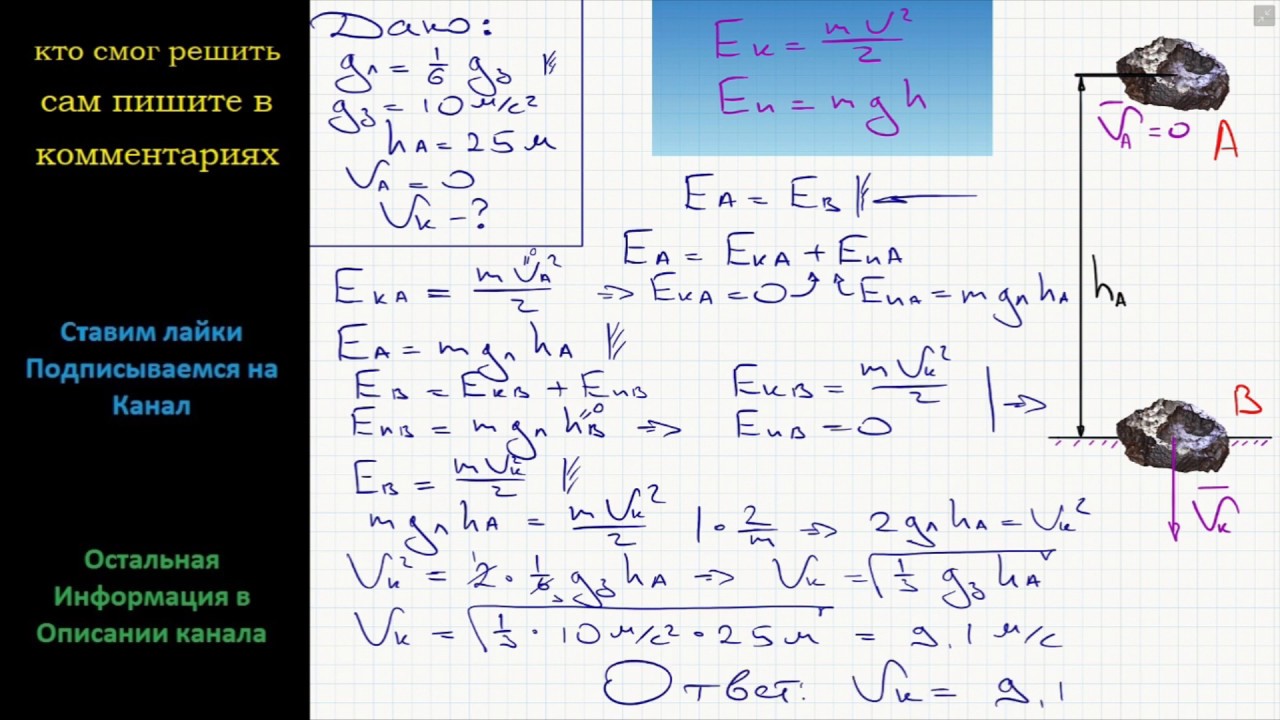 кто смог решить
сам пишите в
комментариях
Ставим лайки
Подписываемся на
Канал
Остальная
Информация в
Описании канала
Дано:
gл = 1/6 gз
gз = 10 м/с²
hA = 25 м
VA = 0
Vк - ?
Eк = mV²/2
Eп = mgh
EA = EB
EA = EкA + EпA
EкA = mVA²/2 ⇒ EкA = 0 EпA = mgлhA
"0
EA = mgлhA
EB = EкB + EпB EкB = mVк²/2 ⇒
EпB = mgлhB ⇒ EпB = 0
"0
EB = mVк²/2
mgлhA = mVк²/2 | · 2/m ⇒ 2gлhA = Vк²
Vк² = 2 · 1/6 3 gзhA ⇒ Vк = √(1/3 gзhA)
Vк = √(1/3 · 10 м/с² · 25 м) = 9,1 м/с
Ответ: Vк = 9,1
VA = 0
A
hA
B
Vк